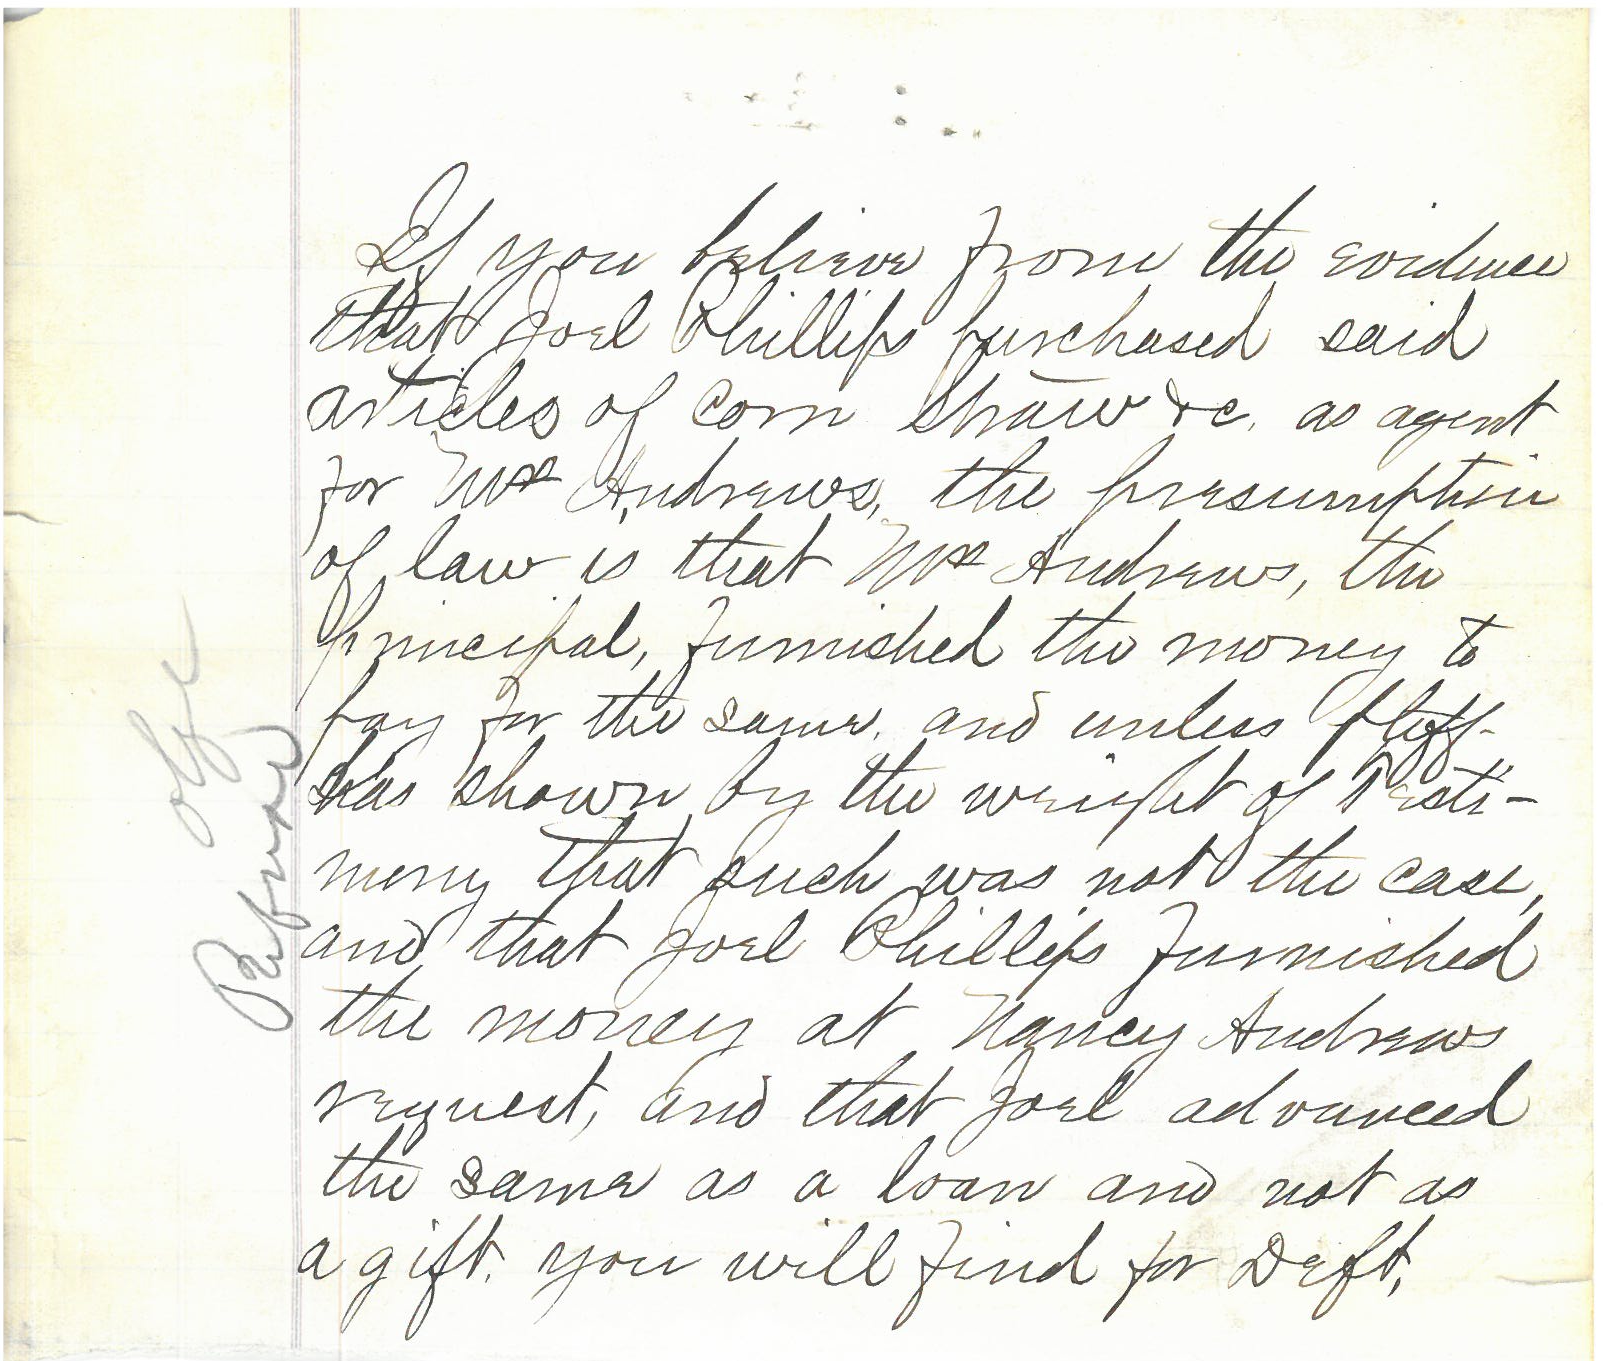 If you believe from the evidence
that Joel Phillips purchased said
articles of corn straw &c. as agent
for Mrs Andrews, the presumption
of law is that Mrs Andrews, the
principal, furnished the money to
pay for the same, and unless pltff-
has shown by the weight of Testi-
mony that such was not the case,
and that Joel Phillips furnished
the money at Nancy Andrews
request, and that Joel advanced
the same as a loan and not as
a gift. you will find for Deft,
Refused